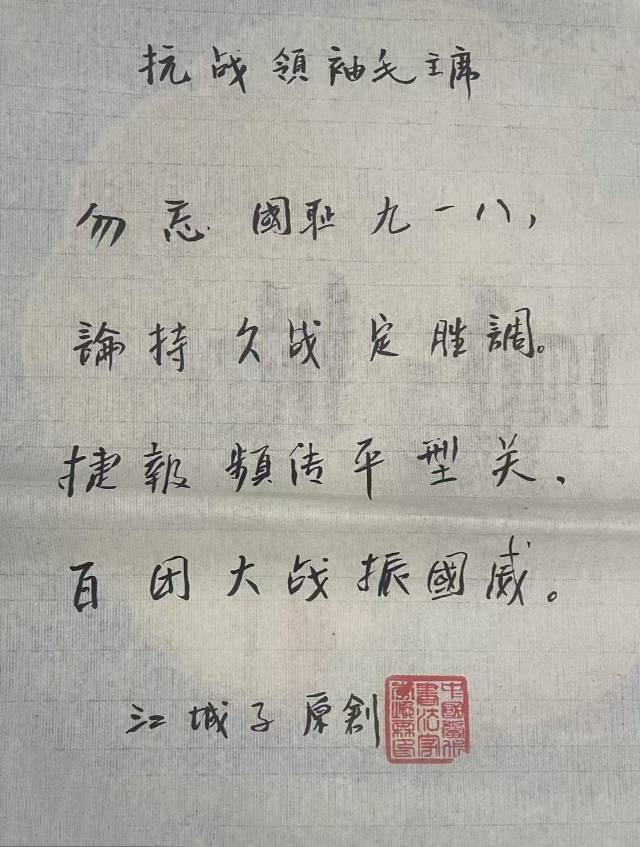 抗战領袖毛主席
勿忘國耻九一八，
論持久战定胜調。
捷報頻传平型关、
百团大战振國威。
江城子原創